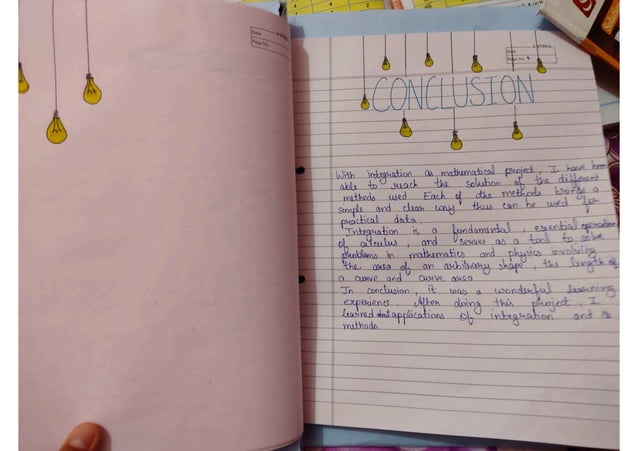 Date
Page No.
Date
Page No. 9
CONCLUSION
With integration as mathematical project, I have been
able to reach the solution of the different
methods used. Each of the methods brings a
simple and clear way thus can be used for
practical data.
Integration is a fundamental, essential operation
of calculus, and serves as a tool to solve
problems in mathematics and physics involving
the area of an arbitrary shape, the length of
a curve and curve area
In conclusion, it was a wonderful learning
experience. After doing this project, I
learned about applications of integration and its
methods.